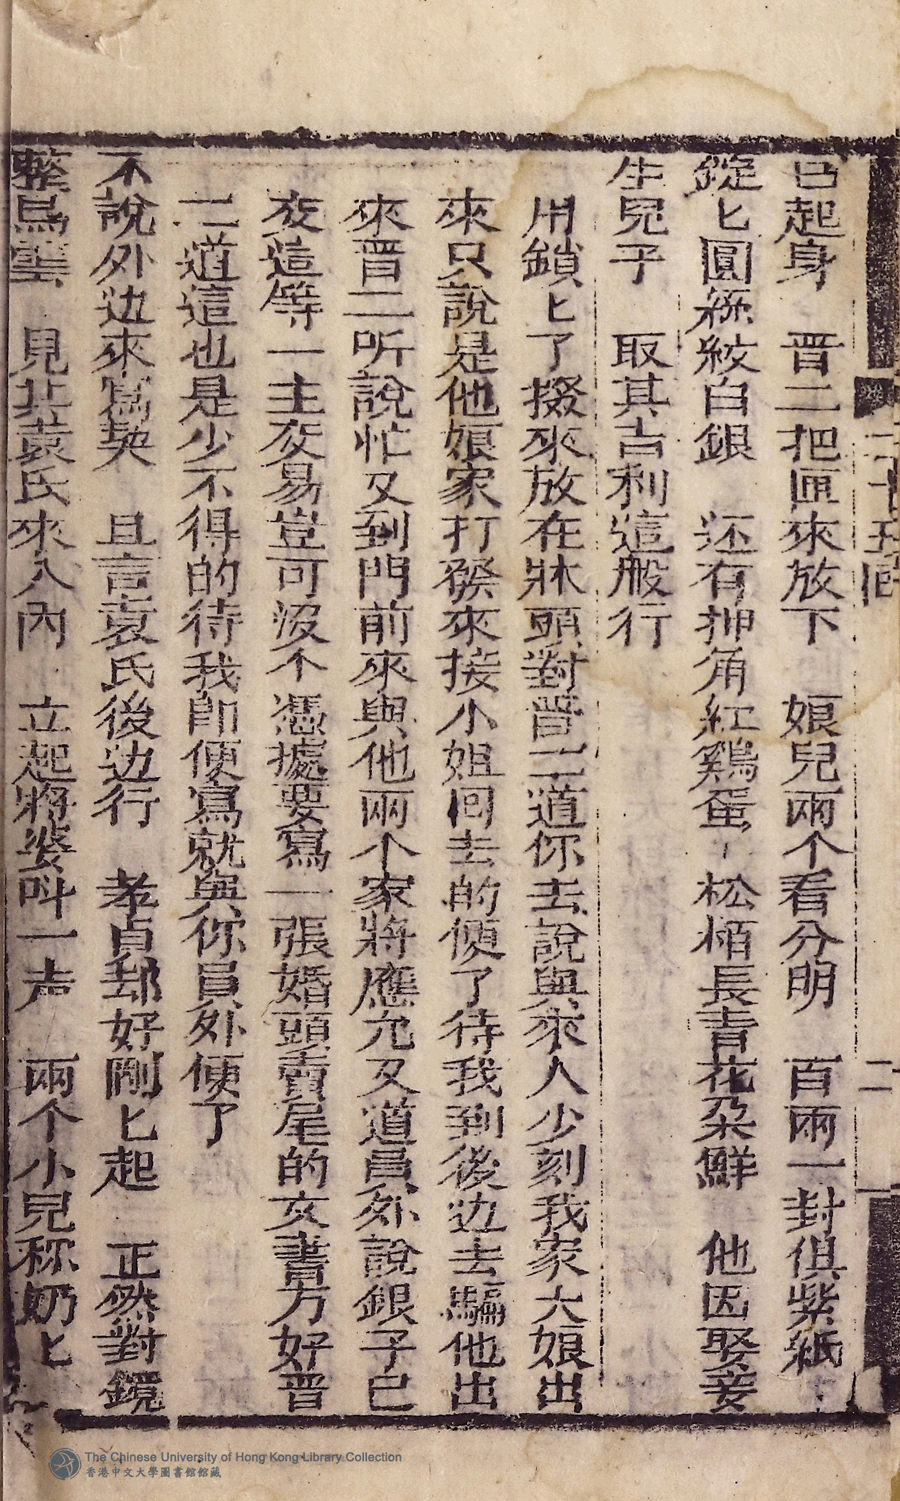 二十五囘
二
已起身　晋二把匣來放下　娘兒兩个看分明　百兩一封俱紫紙
錠匕圓絲紋白銀　还有抻角紅鷄蛋　松栢長青花朵鮮　他因娶妾
生兒子　取其吉利這般行
用鎖匕了掇來放在牀頭對晋二道你去說與來人少刻我家大娘出
來只說是他娘家打發來接小姐回去的便了待我到後边去騙他出
來晋二听說忙又到門前來與他兩个家將應允又道員外說銀子已
交這等一主交易豈可没个憑據要寫一張婚頭賣尾的文書方好晋
二道這也是少不得的待我卽便寫就與你員外便了
不說外边來寫契　且言袁氏後边行　孝貞却好剛匕起　正然對鏡
整烏雲　見其袁氏來入內　立起將婆呌一声　兩个小兒称奶匕
The Chinese University of Hong Kong Library Collection
香港中文大學圖書館館藏